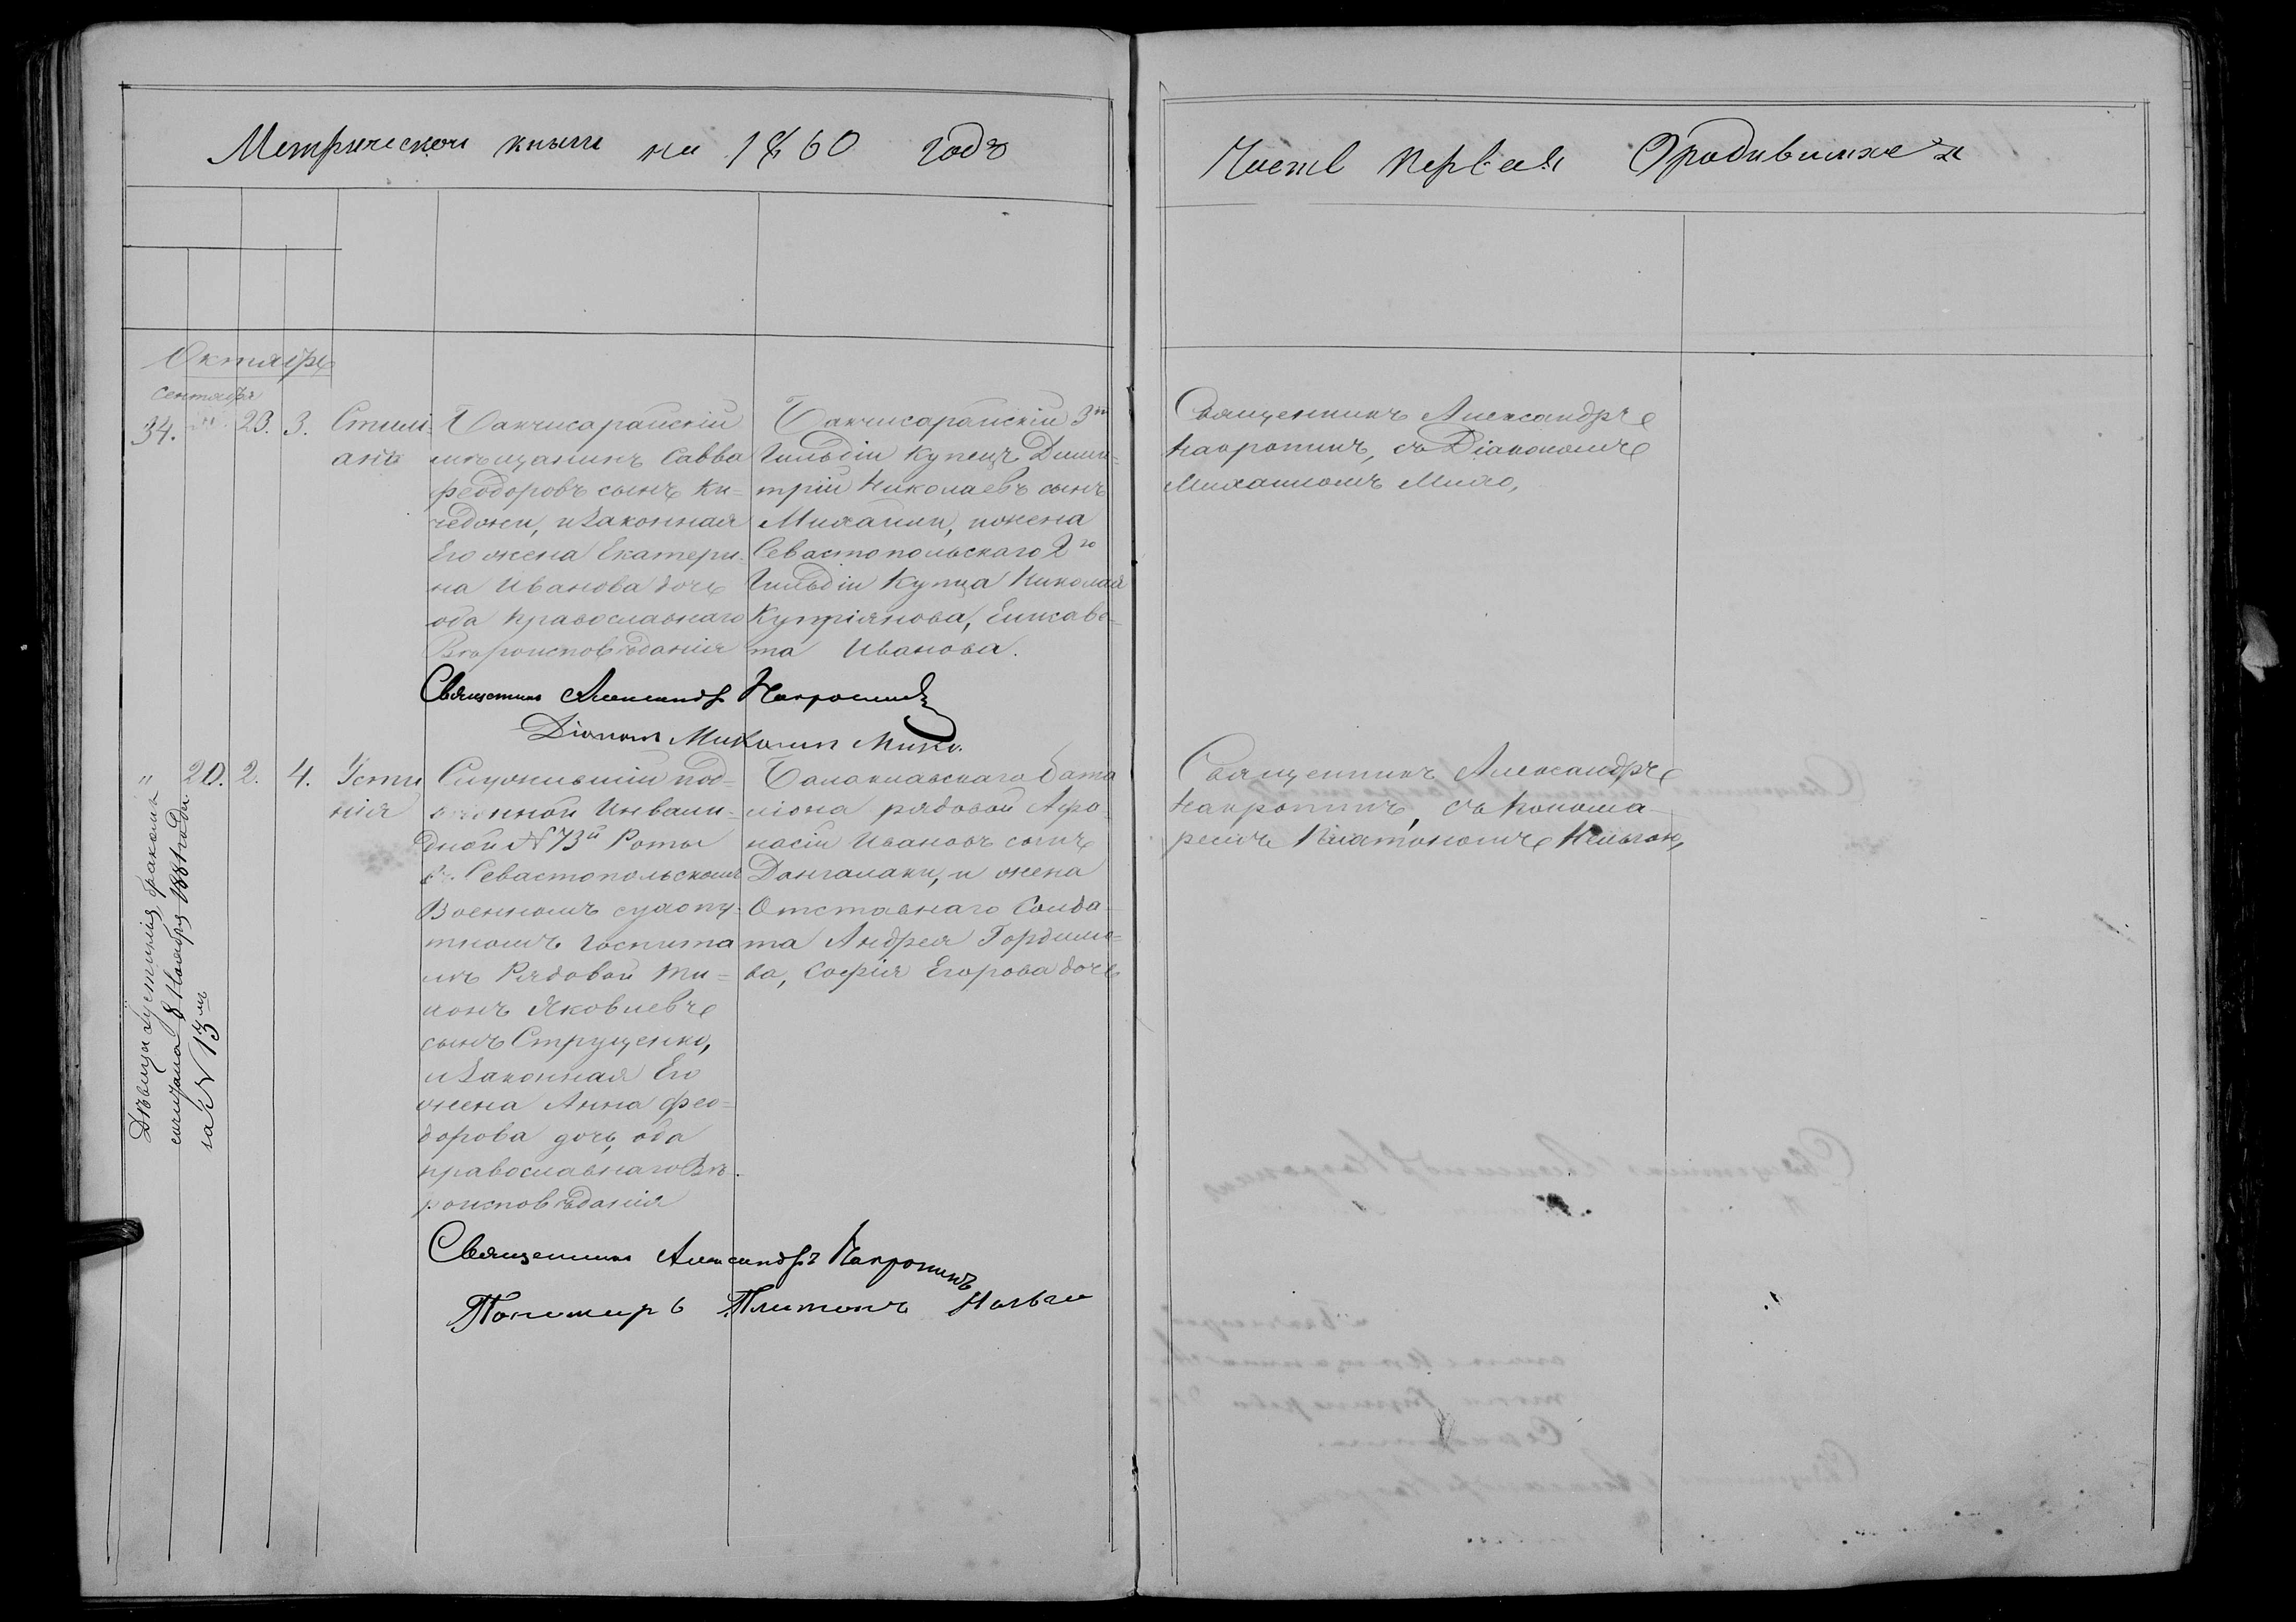 Метрической книги на 1860 годъ
Часть первая О родившихся
Октябрь
Сентябрь
34. 23. 3.
Стили-
анъ
Бакчисарайскій
мѣщанинъ Савва
Феодоровъ сынъ Ки-
чеджи, и законная
Его жена Екатери-
на Иванова дочь
оба православнаго
Вѣроисповѣданія
Бакчисарайскій 3й
Гильдіи Купецъ Дими-
трій Николаевъ сынъ
Михаили, и жена
Севастопольскаго 2го
Гильдіи Купца Николая
Купріянова, Елисаве-
та Иванова.
Священникъ Александръ
Накропинъ, съ Діакономъ
Михаиломъ Михо,
Священникъ Александръ Накропинъ
Діаконъ Михаилъ Михо.
" 20. 2. 4.
Усти
нія
Служившій под-
вижной Инвали-
дной № 73й Роты
въ Севастопольскомъ
Военномъ сухопу-
тномъ Госпита
лѣ Рядовой Ти-
монъ Яковлевъ
сынъ Струценко,
и законная Его
жена Анна Фео-
дорова дочь, оба
православнаго Вѣ-
роисповѣданія
Балаклавскаго бата
ліона рядовой Афа-
насій Ивановъ сынъ
Дангалаки, и жена
Отставнаго Солда-
та Андрея Гордѣе-
ва, Софія Егорова дочь
Священникъ Александръ
Накропинъ, съ Понома-
ремъ Платономъ
Священникъ Александръ Накропинъ
Пономарь Платонъ
Дѣвица Устинія бракомъ
сочетана 8 Ноября 1881 года
за № 13мъ